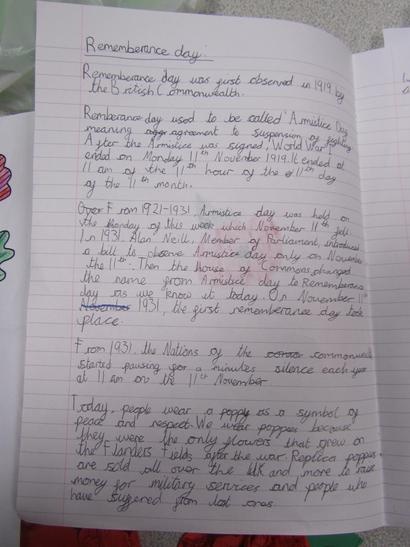 Rememberance day:
Rememberance day was first observed in 1919 by
the British Commonwealth.
Remberance day used to be called "Armistice Day
meaning agreement to suspension of fighting
After the Armistice was signed, World War 1
ended on Monday 11th November 1919. It ended at
11 am of the 11th hour of the 11th day
of the 11th month.
From 1921-1931, Armistice day was held on
the Monday of this week which November 11th fell.
In 1931, Alan Neill, Member of Parliament, introduced
a bill to observe Armistice day only on November
the 11th. Then the house of Commons changed
the name from Armistice day to Rememberance
day as we know it today. On November 11th
November 1931, the first rememberance day took
place.
From 1931, the Nations of the commonwealth
started pausing for a minutes silence each year
at 11 am on the 11th November
Today, people wear a poppy as a symbol of
peace and respect. We wear poppies because
they were the only flowers that grew on
the Flanders Fields after the war. Replica poppies
are sold all over the UK and more to raise
money for military services and people who
have suffered from lost ones.